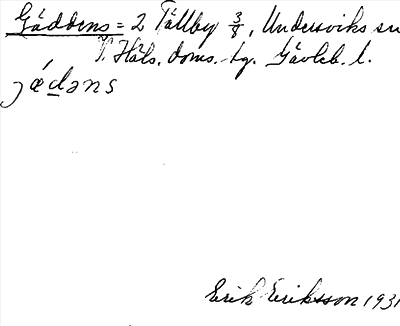 Gäddens = 2 Tällby 3/8, Undersviks sn
N. Häls. doms. tg. Gävleb. l.
jæ´dəns
Erik Eriksson 1931